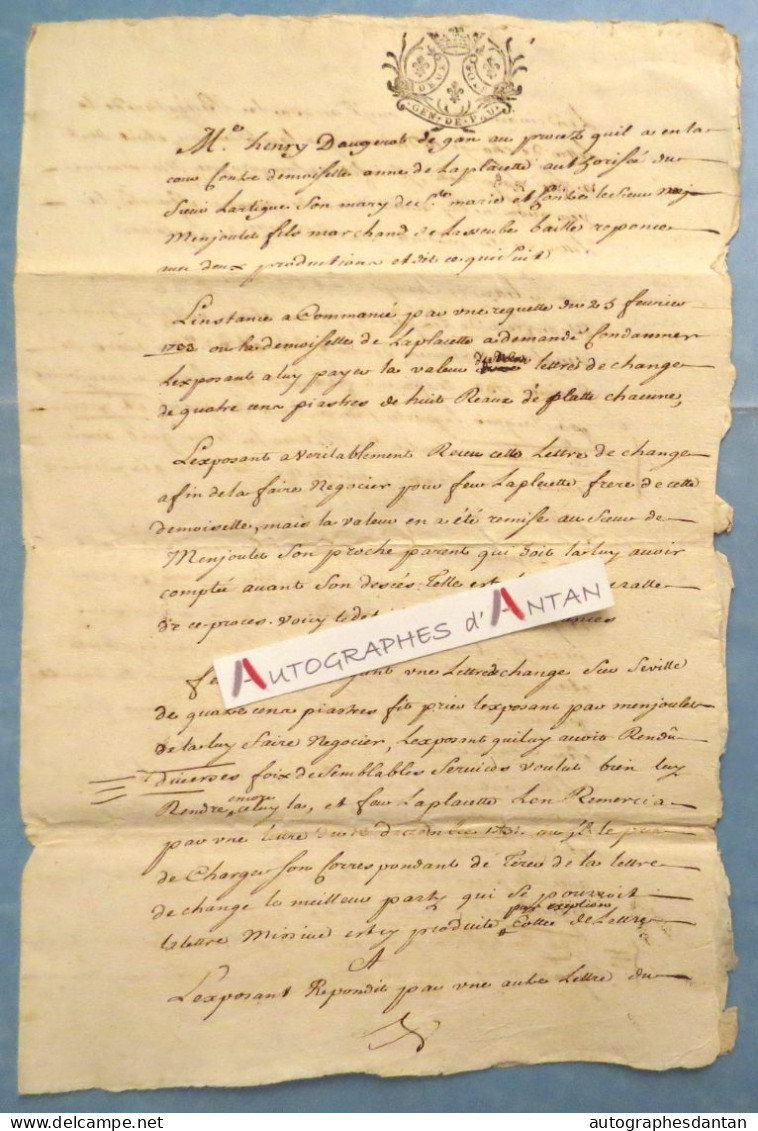 GEN·DE·PAU
Mr. henry Daugerot de gan au procez quil a en la
cour Contre demoiselle anne de Laplacette authorisée du
Sieur Lartigue Son mary de Ste. marie et Contre le Sieur
Menjoulet fils marchand de Lasseube baille reponce
aux deux productions et dit ce qui Suit
L'instance a Commancé par vne requette du 25 fevrier
1733 ou la demoiselle de Laplacette a demandé Condamner
Lexposant a luy payer la valeur lettres de change
de quatre cens piastres de huit Reaux de platte chacune,
L'exposant a Veritablement Receu cette Lettre de change
afin de la faire Negocier pour feu Laplacette frere de cette
demoiselle, mais la valeur en a été remise au Sieur de
Menjoulet Son proche parent qui doit la luy avoir
comptée avant Son descés. Telle est
de ce proces. voicy le
AUTOGRAPHES d'ANTAN
vne Lettre de change Sur Seville
de quatre cens piastres fit prier lexposant par menjoulet
de la luy faire Negocier, Lexposant qui luy avoit Rendû
diverses foix de Semblables Services voulut bien luy
Rendre encore celuy la, et feu Laplacette Len Remercia
par vne lettre du ou Il le prie
de Charger Son Correspondant de Tirer de la lettre
de change le meilleur party qui Se pouroit
la lettre Missive est cy produite par exeption Cottée de Lettre
A
Lexposant Repondit par vne autre Lettre du
autographesdantan